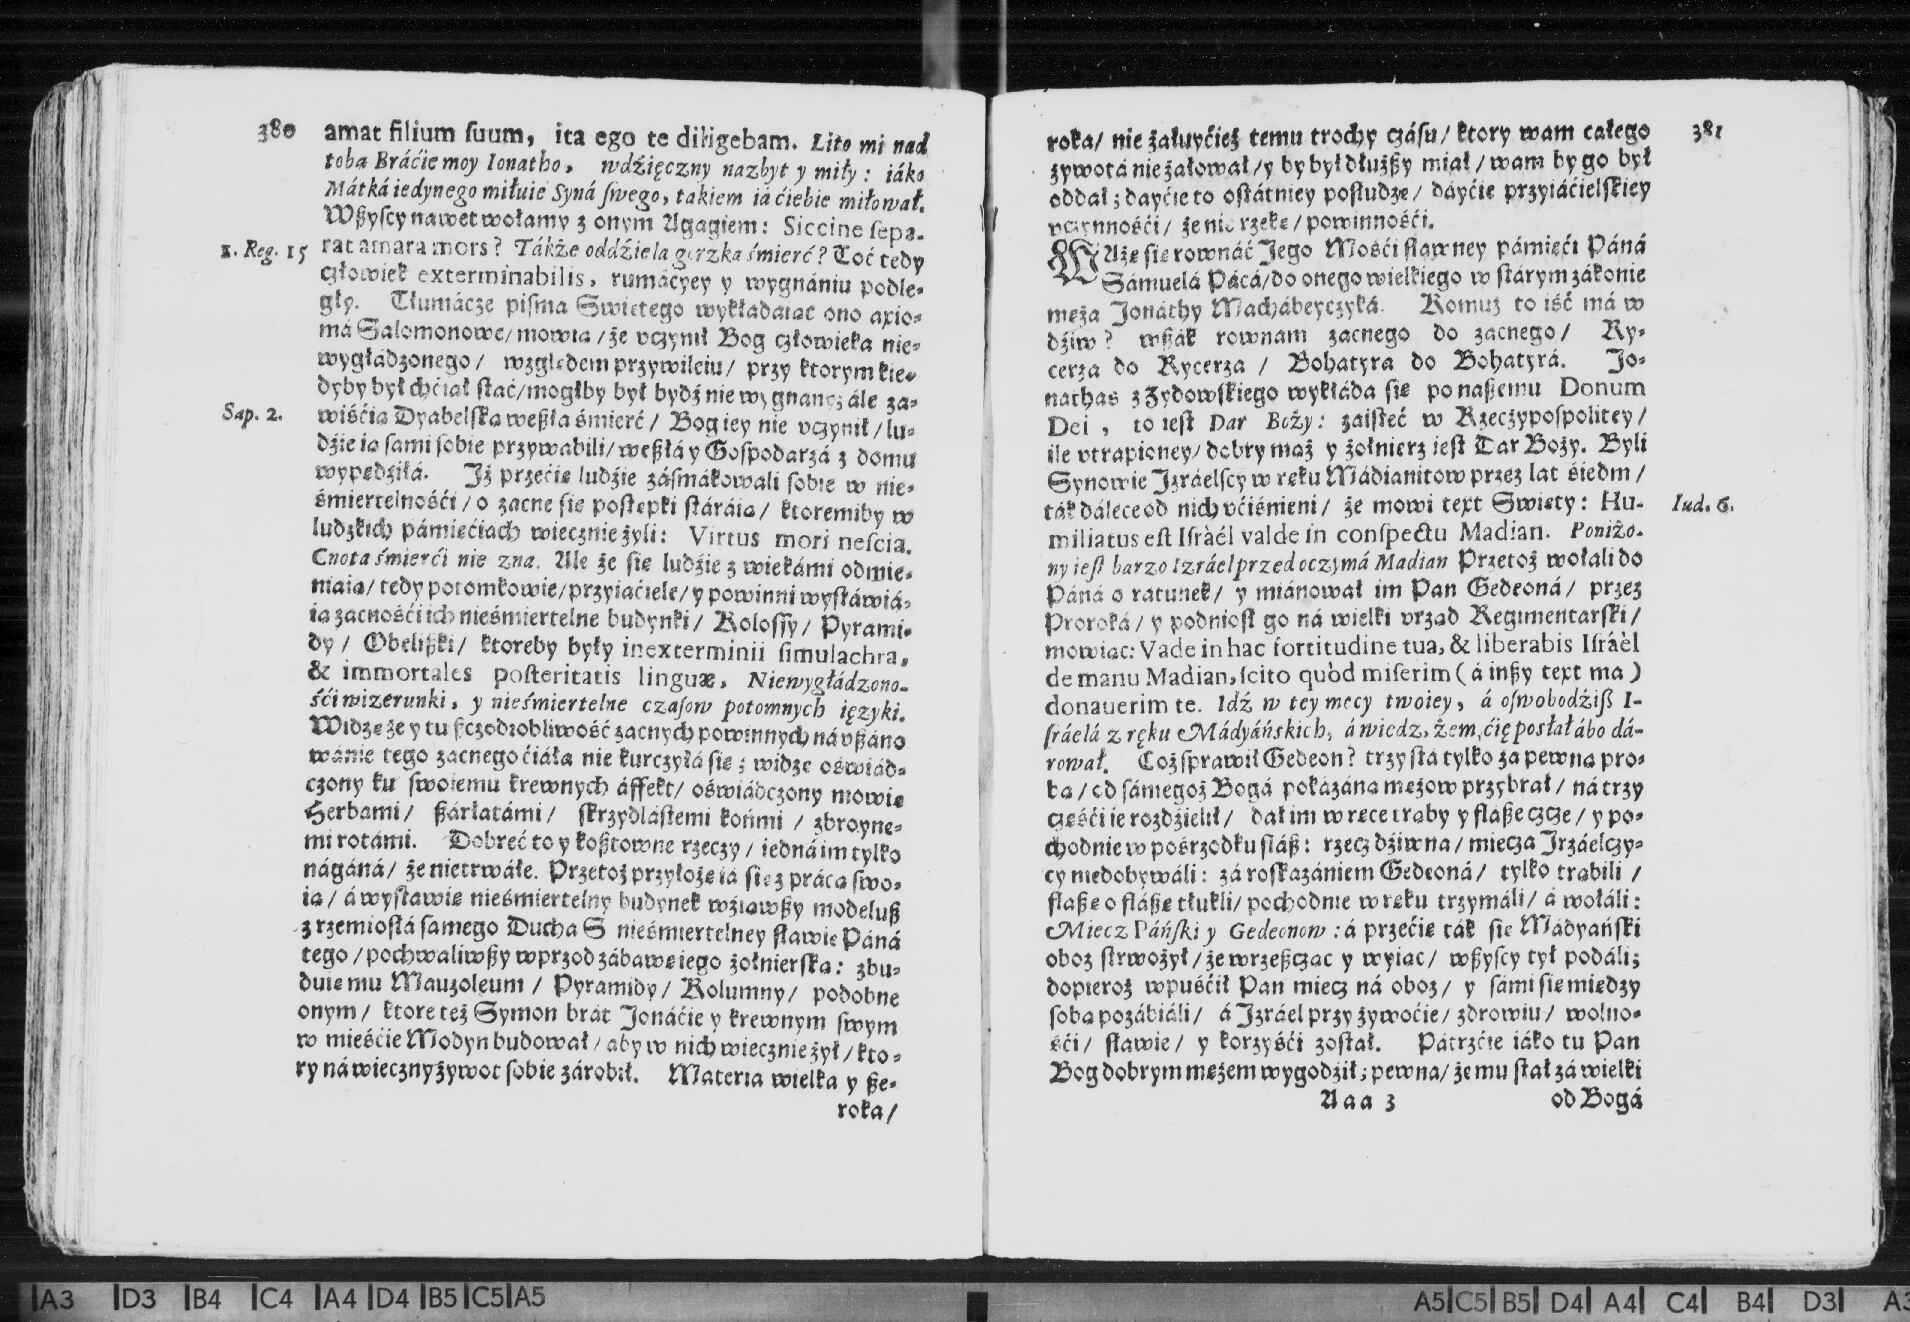 380
amat filium ſuum, ita ego te diligebam. Lito mi nad
tobą Bráćie moy Ionatho, wdźięczny nazbyt y miły: iáko
Mátká iedynego miłuie Syná ſwego, takiem ia ćiebie miłował.
Wßyſcy nawet wołamy z onym Agagiem: Siccine ſepa-
1. Reg. 15
rat amara mors? Tákże oddźiela gorzka śmierć? Toć tedy
człowiek exterminabilis, rumácyey y wygnániu podle-
gły. Tłumácze piſma Swiętego wykładaiąc ono axio-
má Salomonowe/ mowią/ że vczynił Bog człowieka nie-
wygładzonego/ względem przywileiu/ przy ktorym kie-
dyby był chćiał ſtać/ mogłby był bydź nie wygnany; ále za-
Sap. 2.
wiśćią Dyabelſką weßła śmierć/ Bog iey nie vczynił/ lu-
dźie ią ſami ſobie przywabili/ weßłá y Goſpodarzá z domu
wypędźiłá. Jż przećie ludźie záſmákowali ſobie w nie-
śmiertelnośći/ o zacne ſie poſtępki ſtáráią/ ktoremiby w
ludzkich pámięćiach wiecznie żyli: Virtus mori neſcia.
Cnota śmierći nie zna. Ale że ſię ludźie z wiekámi odmie-
niaią/ tedy potomkowie/ przyiaćiele/ y powinni wyſtáwiá-
ią zacnośći ich nieśmiertelne budynki/ Koloſſy/ Pyrami-
dy/ Obelißki/ ktoreby były inexterminii ſimulachra,
& immortales poſteritatis linguæ, Niewygłádzono-
śći wizerunki, y nieśmiertelne czaſow potomnych ięzyki.
Widzę że y tu ßczodrobliwość zacnych powinnych ná vßáno
wánie tego zacnego ćiáła nie kurczyłá ſię; widzę oświád-
czony ku ſwoiemu krewnych áffekt/ oświádczony mowię
Herbami/ ßárłatámi/ ſkrzydláſtemi końmi/ zbroyne-
mi rotámi. Dobreć to y koßtowne rzeczy/ iedná im tylko
nágáná/ że nietrwáłe. Przetoż przyłożę ia ſię z pracą ſwo-
ią/ á wyſtawię nieśmiertelny budynek wźiąwßy modeluß
z rzemioſłá ſamego Ducha S nieśmiertelney ſławie Páná
tego/ pochwaliwßy wprzod zábawę iego żołnierſką: zbu-
duię mu Mauzoleum/ Pyramidy/ Kolumny/ podobne
onym/ ktore też Symon brát Jonáćie y krewnym ſwym
w mieśćie Modyn budował/ aby w nich wiecznie żył/ kto-
ry ná wieczny żywot ſobie zárobił. Materia wielka y ße-
roka/
381
roka/ nie żałuyćież temu trochy czáſu/ ktory wam całego
żywotá nie żałował/ y by był dłużßy miał/ wam by go był
oddał; dayćie to oſtátniey poſłudze/ dáyćie przyiáćielſkiey
vczynnośći/ że nie rzekę/ powinnośći.
WAżę ſię rownáć Jego Mośći ſławney pámięći Páná
Sámuelá Pácá/ do onego wielkiego w ſtárym zákonie
mężá Jonáthy Macháбeyczyká. Komuż to iść má w
dźiw? wßák rownam zacnego do zacnego/ Ry-
cerzá do Rycerza/ Bohatyra do Bohatyrá. Jo-
nathas z Żydowſkiego wykłáda ſię po naßemu Donum
Dei, to ieſt Dar Boży: záiſteć w Rzeczypoſpolitey/
ile vtrapioney/ dobry mąż y żołnierz ieſt Dar Boży. Byli
Synowie Jzráelſcy w ręku Mádianitow przez lat śiedm/
ták dálece od nich vćiśnieni/ że mowi text Swięty: Hu-
Iud. 6.
miliatus eſt Iſráél valde in conſpectu Madian. Poniżo-
ny ieſt barzo Izráel przed oczymá Madian Przetoż wołali do
Páná o ratunek/ y miánował im Pan Gedeoná/ przez
Proroká/ y podnioſł go ná wielki vrząd Regimentarſki/
mowiąc: Vade in hac fortitudine tua, & liberabis Iſráèl
de manu Madian, ſcito quòd miſerim (á inßy text ma)
donauerim te. Idź w tey mocy twoiey, á oſwobodźiß I-
ſráelá z ręku Mádyáńskich, á wiedz, żem ćię poſłał ábo dá-
rował. Coż ſprawił Gedeon? trzyſtá tylko zá pewną pro-
bą/ od ſámegoż Bogá pokazáną mężow przybrał/ ná trzy
częśći ie rozdźielił/ dał im w ręce trąby y fláße czcze/ y po-
chodnie w pośrzodku fláß: rzecz dźiwna/ mieczá Jzráelczy-
cy niedobywáli: zá roſkazániem Gedeoná/ tylko trąbili/
flaße o fláße tłukli/ pochodnie w ręku trzymáli/ á wołáli:
Miecz Páńſki y Gedeonow: á przećię ták ſię Mádyáńſki
oboz ſtrwożył/ że wrzeßcząc y wyiąc/ wßyſcy tył podáli;
dopieroż wpuśćił Pan miecz ná oboz/ y ſámi ſię między
ſobą pozábiáli/ á Jzráel przy żywoćie/ zdrowiu/ wolno-
śći/ ſławie/ y korzyśći zoſtał. Pátrzćie iáko tu Pan
Bog dobrym mężem wygodźił; pewna/ że mu ſtał zá wielki
Aaa 3
od Bogá
A3 D3 B4 C4 A4 D4 B5 C5 A5
A5 C5 B5 D4 A4 C4 B4 D3 A3